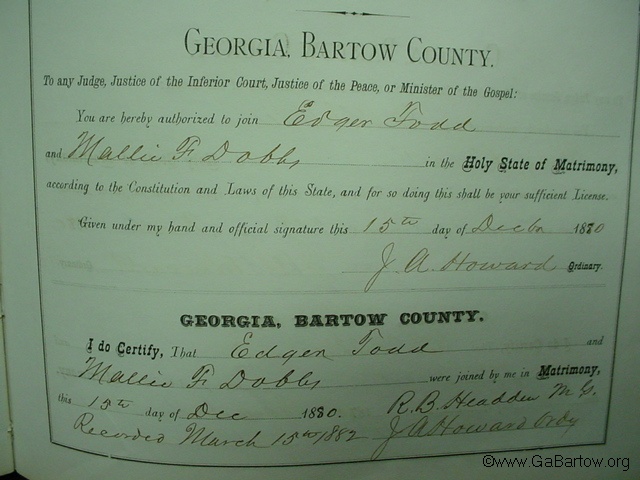 GEORGIA, BARTOW COUNTY.
To any Judge, Justice of the Inferior Court, Justice of the Peace, or Minister of the Gospel:
You are hereby authorized to join Edger Todd
and Mallie F Dobbs in the Holy State of Matrimony,
according to the Constitution and Laws of this State, and for so doing this shall be your sufficient License.
Given under my hand and official signature this 15th day of Decbr 1880
J. A. Howard Ordinary.
GEORGIA, BARTOW COUNTY.
I do Certify, That Edger Todd and
Mallie F Dobbs were joined by me in Matrimony,
this 15th day of Dec 1880. R. B. Headden M. G.
Recorded March 15th 1882 J A Howard Ordy
©www.GaBartow.org